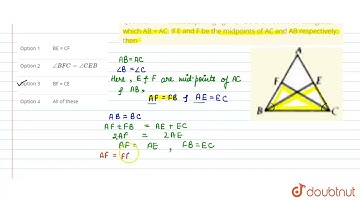 which AB = AC. If E and F be the midpoints of AC and AB respectively,
then
Option 1 BE = CF
Option 2 ∠BFC = ∠CEB
Option 3 BF = CE
Option 4 All of these
AB = AC
∠B = ∠C
Here, E & F are mid-points of AC
& AB,
AF = FB & AE = EC
AB = BC
AF + FB = AE + EC
2AF = 2AE
AF = AE , FB = EC
AF = 
A
F
E
B
C
doubtnut